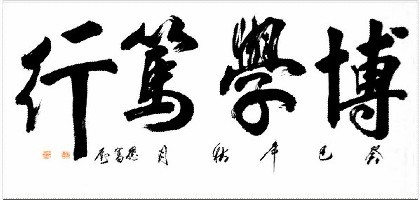 博學篤行
癸巳年秋月